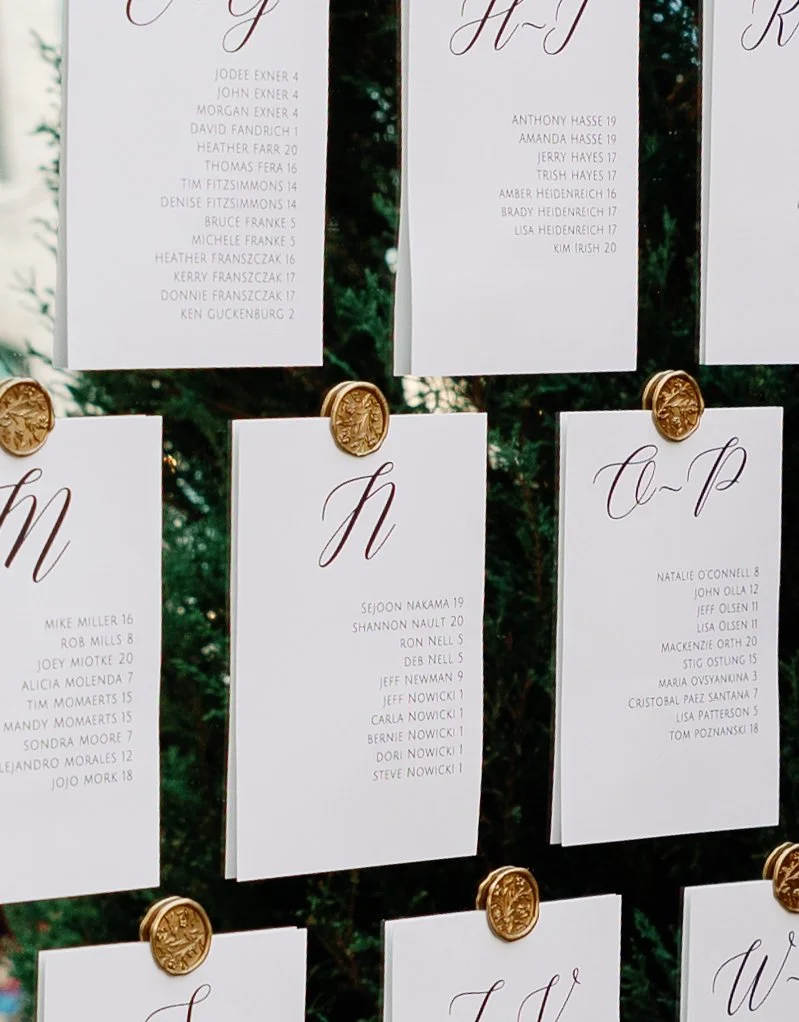 H~J
JODEE EXNER 4
JOHN EXNER 4
MORGAN EXNER 4
DAVID FANDRICH 1
HEATHER FARR 20
THOMAS FERA 16
TIM FITZSIMMONS 14
DENISE FITZSIMMONS 14
BRUCE FRANKE 5
MICHELE FRANKE 5
HEATHER FRANSZCZAK 16
KERRY FRANSZCZAK 17
DONNIE FRANSZCZAK 17
KEN GUCKENBURG 2
ANTHONY HASSE 19
AMANDA HASSE 19
JERRY HAYES 17
TRISH HAYES 17
AMBER HEIDENREICH 16
BRADY HEIDENREICH 17
LISA HEIDENREICH 17
KIM IRISH 20
M
MIKE MILLER 16
ROB MILLS 8
JOEY MIOTKE 20
ALICIA MOLENDA 7
TIM MOMAERTS 15
MANDY MOMAERTS 15
SONDRA MOORE 7
LEJANDRO MORALES 12
JOJO MORK 18
N
SEJOON NAKAMA 19
SHANNON NAULT 20
RON NELL 5
DEB NELL 5
JEFF NEWMAN 9
JEFF NOWICKI 1
CARLA NOWICKI 1
BERNIE NOWICKI 1
DORI NOWICKI 1
STEVE NOWICKI 1
O~P
NATALIE O'CONNELL 8
JOHN OLLA 12
JEFF OLSEN 11
LISA OLSEN 11
MACKENZIE ORTH 20
STIG OSTUNG 15
MARIA OVSYANKINA 3
CRISTOBAL PAEZ SANTANA 7
LISA PATTERSON 5
TOM POZNANSKI 18
W~